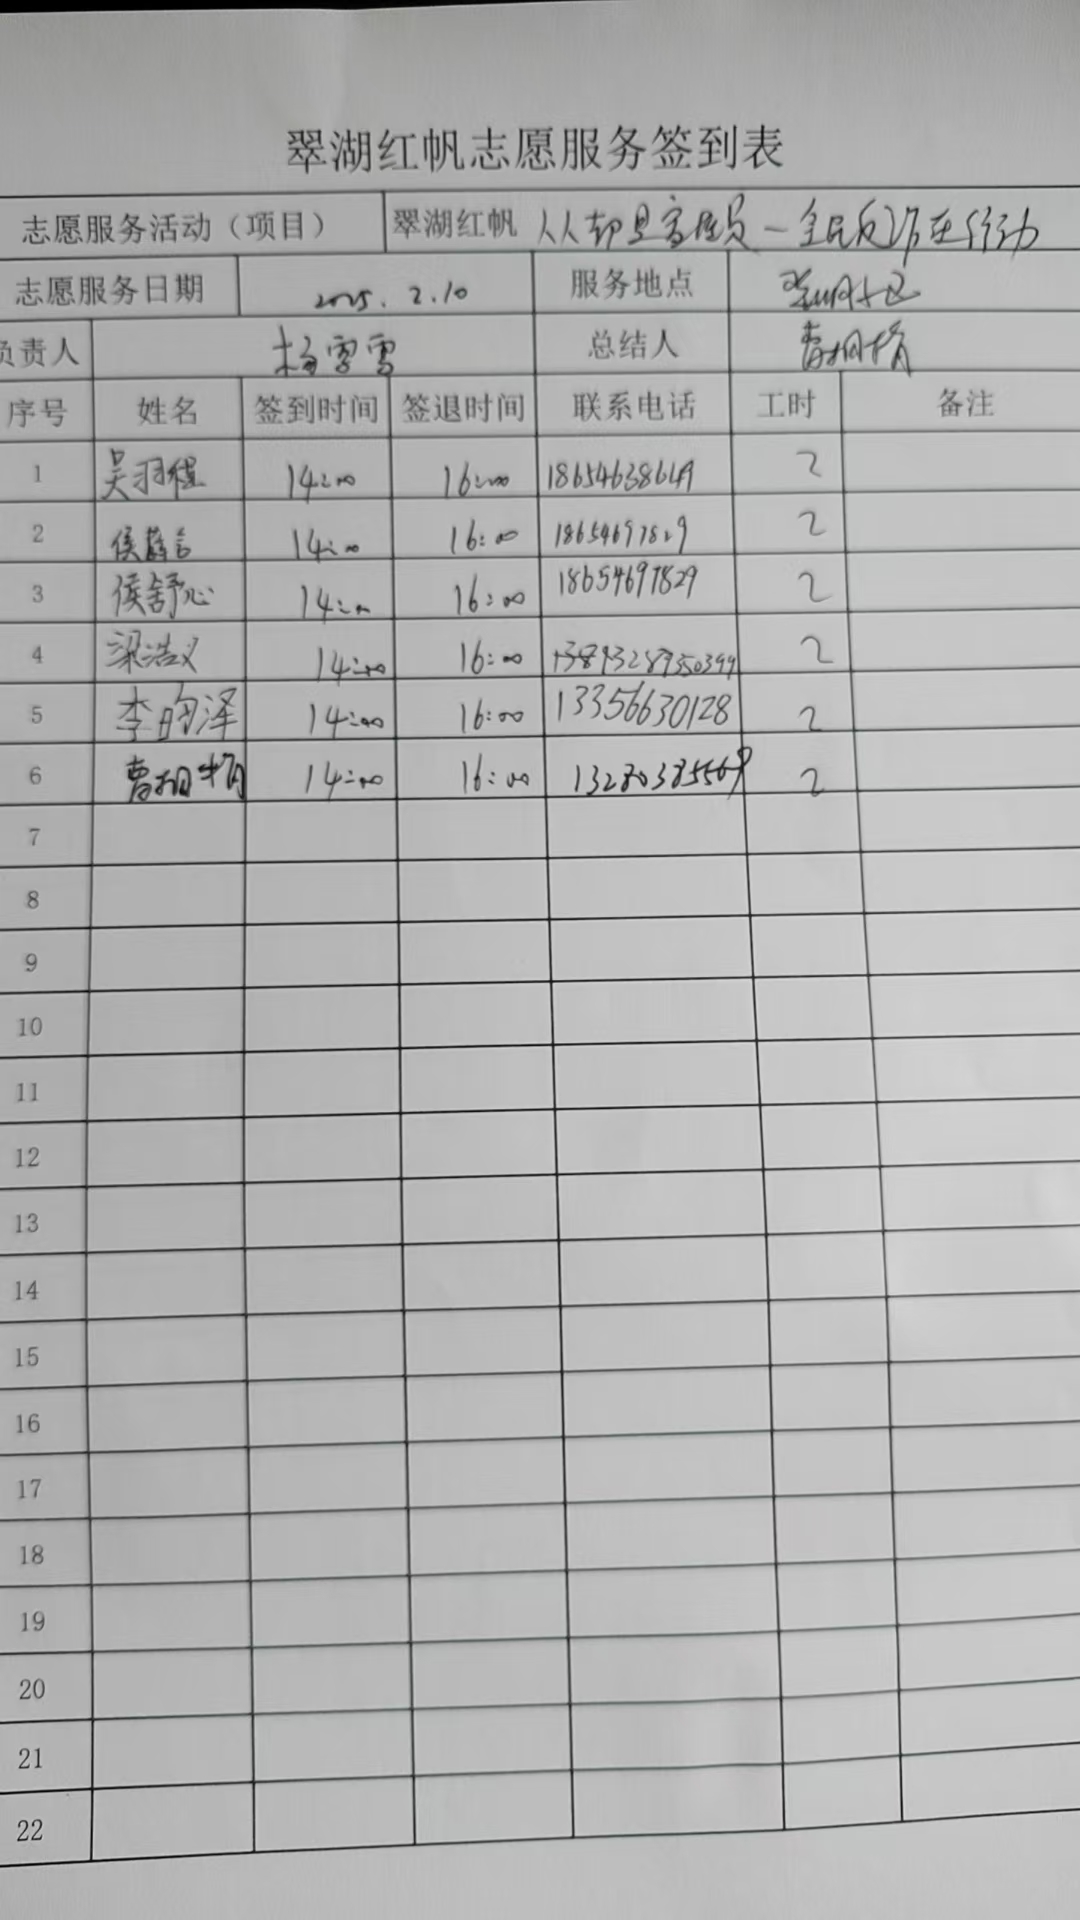 翠湖红帆志愿服务签到表
志愿服务活动（项目） 翠湖红帆 人人都是宣传员一全民反诈在行动
志愿服务日期 2025.2.10 服务地点
负责人 杨雪雪 总结人 曹相梅
序号 姓名 签到时间 签退时间 联系电话 工时 备注
1 吴羽程 14:00 16:00 18654638649 2
2 侯 言 14:00 16:00 18654697829 2
3 侯舒心 14:00 16:00 18654697829 2
4 梁浩义 14:00 16:00 2
5 李昀泽 14:00 16:00 13356630128 2
6 曹相梅 14:00 16:00 13280385569 2
7
8
9
10
11
12
13
14
15
16
17
18
19
20
21
22